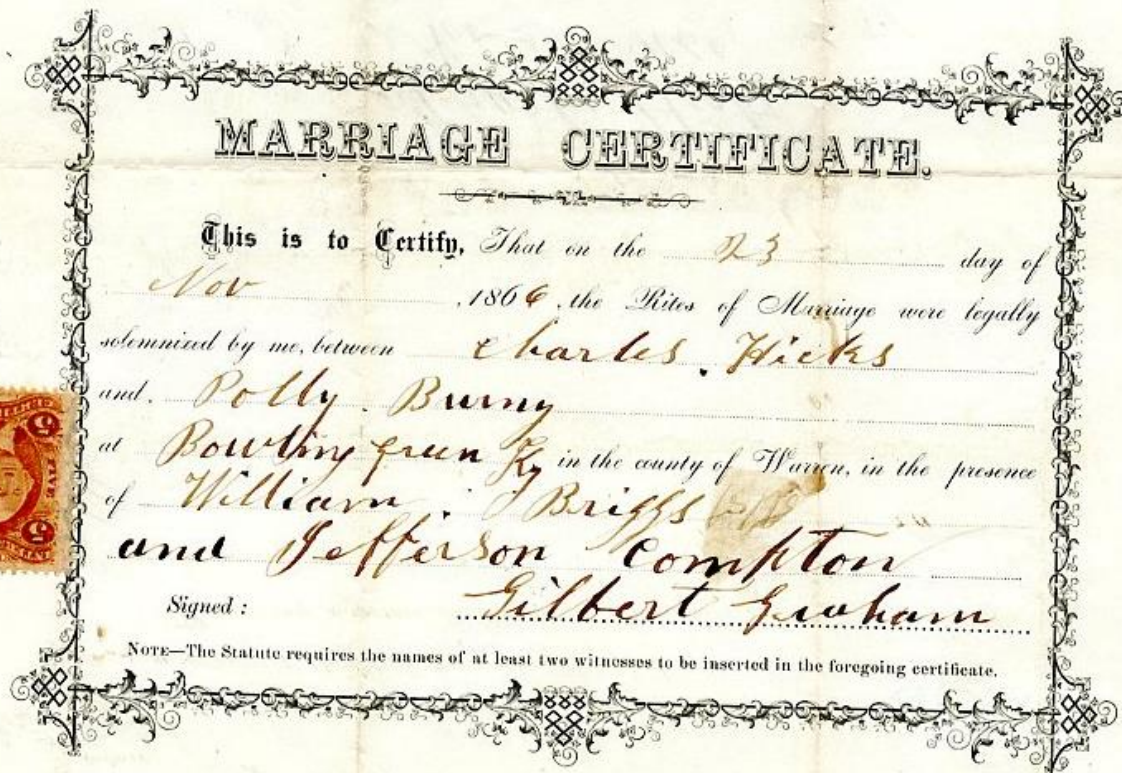 MARRIAGE CERTIFICATE.
This is to Certify, That on the 23 day of
Nov , 1866 , the Rites of Marriage were legally
solemnized by me, between Charles . Hicks
and . Polly . Burny
at Bowling green Ky in the county of Warren, in the presence
of William . Briggs
and Jefferson Compton
Signed : Gilbert Graham
NOTE—The Statute requires the names of at least two witnesses to be inserted in the foregoing certificate.
5
5